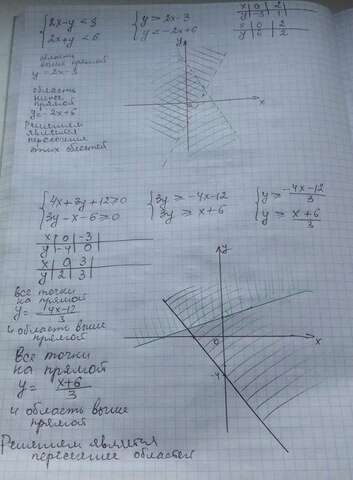 {2x-y<3 {y>2x-3 x|0|2
{2x+y<6 {y<-2x+6 y|-3|1
x|0|2
y|6|2
y
область
выше прямой
y=2x-3
область
ниже
прямой
y=-2x+6
x
Решением
является
пересечение
этих областей
{4x+3y+12≥0 {3y≥-4x-12 {y≥-4x-12/3
{3y-x-6≥0 {3y≥x+6 {y≥x+6/3
x|0|-3
y|-4|0
x|0|3
y|2|3
y
все точки
на прямой
y=-4x-12/3
и область выше
прямой
0
x
Все точки
на прямой
y=x+6/3
-4
и область выше
прямой
Решением является
пересечение областей